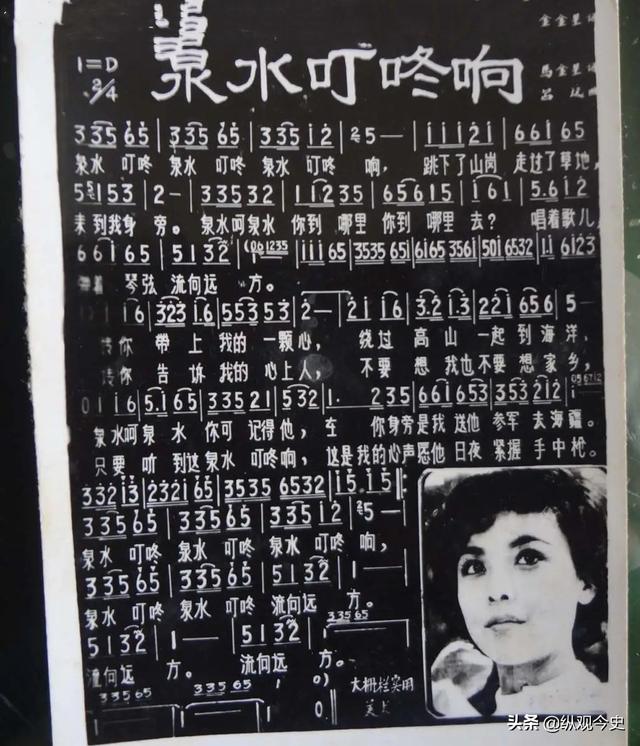 泉水叮咚响
1=D
2/4
马金星词
吕远曲
3 3 5 6 5 | 3 3 5 6 5 | 3 3 5 i 2 | 5 — | i i i 2 i | 6 6 i 6 5
泉水 叮咚 泉水 叮咚 泉水 叮咚 响, 跳下了山岗 走过了草地,
5 i 5 3 | 2 — | 3 3 5 3 2 | 1 1 2 3 5 | 6 5 6 1 5 | i 6 i | 5. 6 i 2
来到我身 旁。泉水呵泉水 你到 哪里 你到 哪里 去? 唱着歌儿,
6 6 i 6 5 | 5 1 3 2 | (0 6 1 2 3 5 | i i i 6 5 | 3 5 3 5 6 5 i | 6 i 6 5 3 5 6 i | 5 0 i 6 5 3 2 | 1 i 6 i 2 3
琴弦 流向远 方。
i i 6 | 3 2 3 i. 6 | 5 5 3 5 3 | 2 — | 2 i i 6 | 3. 2 i. 3 | 2 2 i 6 5 6 | 5 —
请你 带 上 我的 一颗心, 绕过 高 山 一起 到 海 洋,
请你 告 诉 我的 心上人, 不要 想 我也 不要 想家 乡,
0 i i 6 | 5. i 6 5 | 3 3 5 2 1 | 5 3 2 | 1. 2 3 5 | 6 6 i 6 5 3 | 3 5 3 2 i 2 | i
泉水呵泉 水 你可 记得他, 在 你身旁是我 送他 参军 去海疆。
只要 听 到这泉水 叮咚响, 这是我的心声愿他 日夜 紧握 手中枪。
3 3 2 i 3 | 2 3 2 i 6 5 | 3 5 3 5 6 5 3 2 | i 5 i 5
3 3 5 6 5 | 3 3 5 6 5 | 3 3 5 i 2 | 5 —
泉水 叮咚 泉水 叮咚 泉水 叮咚 响,
3 3 5 6 5 | 3 3 5 6 5 | 5 1 3 2 | 1 —
泉水 叮咚 泉水 叮咚 流向远 方。
3 3 5 6 5
5 1 3 2 | 1 — | 5 1 3 2 | 1 —
流向远 方。 流向远 方。
3 3 5 6 5 3 3 5 6 5 i 0)
大栅栏实用
美术
头条 @纵观今史